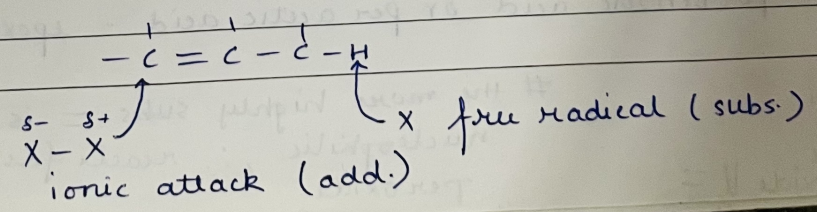 - C = C - C - H
δ- δ+
X - X
X free radical (subs.)
ionic attack (add.)